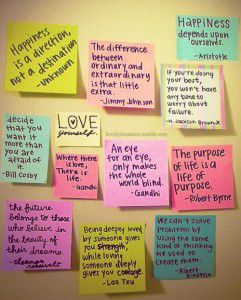 Happiness
is a direction,
not a destination
-unknown
The difference
between
ordinary and
extraordinary
is that little
extra.
-Jimmy Johnson
HAPPINESS
depends upon
ourselves.
-Aristotle
If you're doing
your best,
you won't have
any time to
worry about
failure.
-H. Jackson Brown Jr.
decide
that you
want it
more than
you are
afraid of
it.
-Bill Cosby
LOVE
yourself.
Where there
is love,
There is
life.
-Gandhi
An eye
for an eye,
only makes
the whole
world blind.
-Gandhi
The purpose
of life is a
life of
purpose.
-Robert Byrne
the future
belongs to those
who believe in
the beauty of
their dreams.
-eleanor
roosevelt
Being deeply loved
by someone gives
you strength,
while loving
someone deeply
gives you courage.
-Lao Tzu
We can't solve
problems by
using the same
kind of thinking
we used to
create them.
-Albert
EINSTEIN